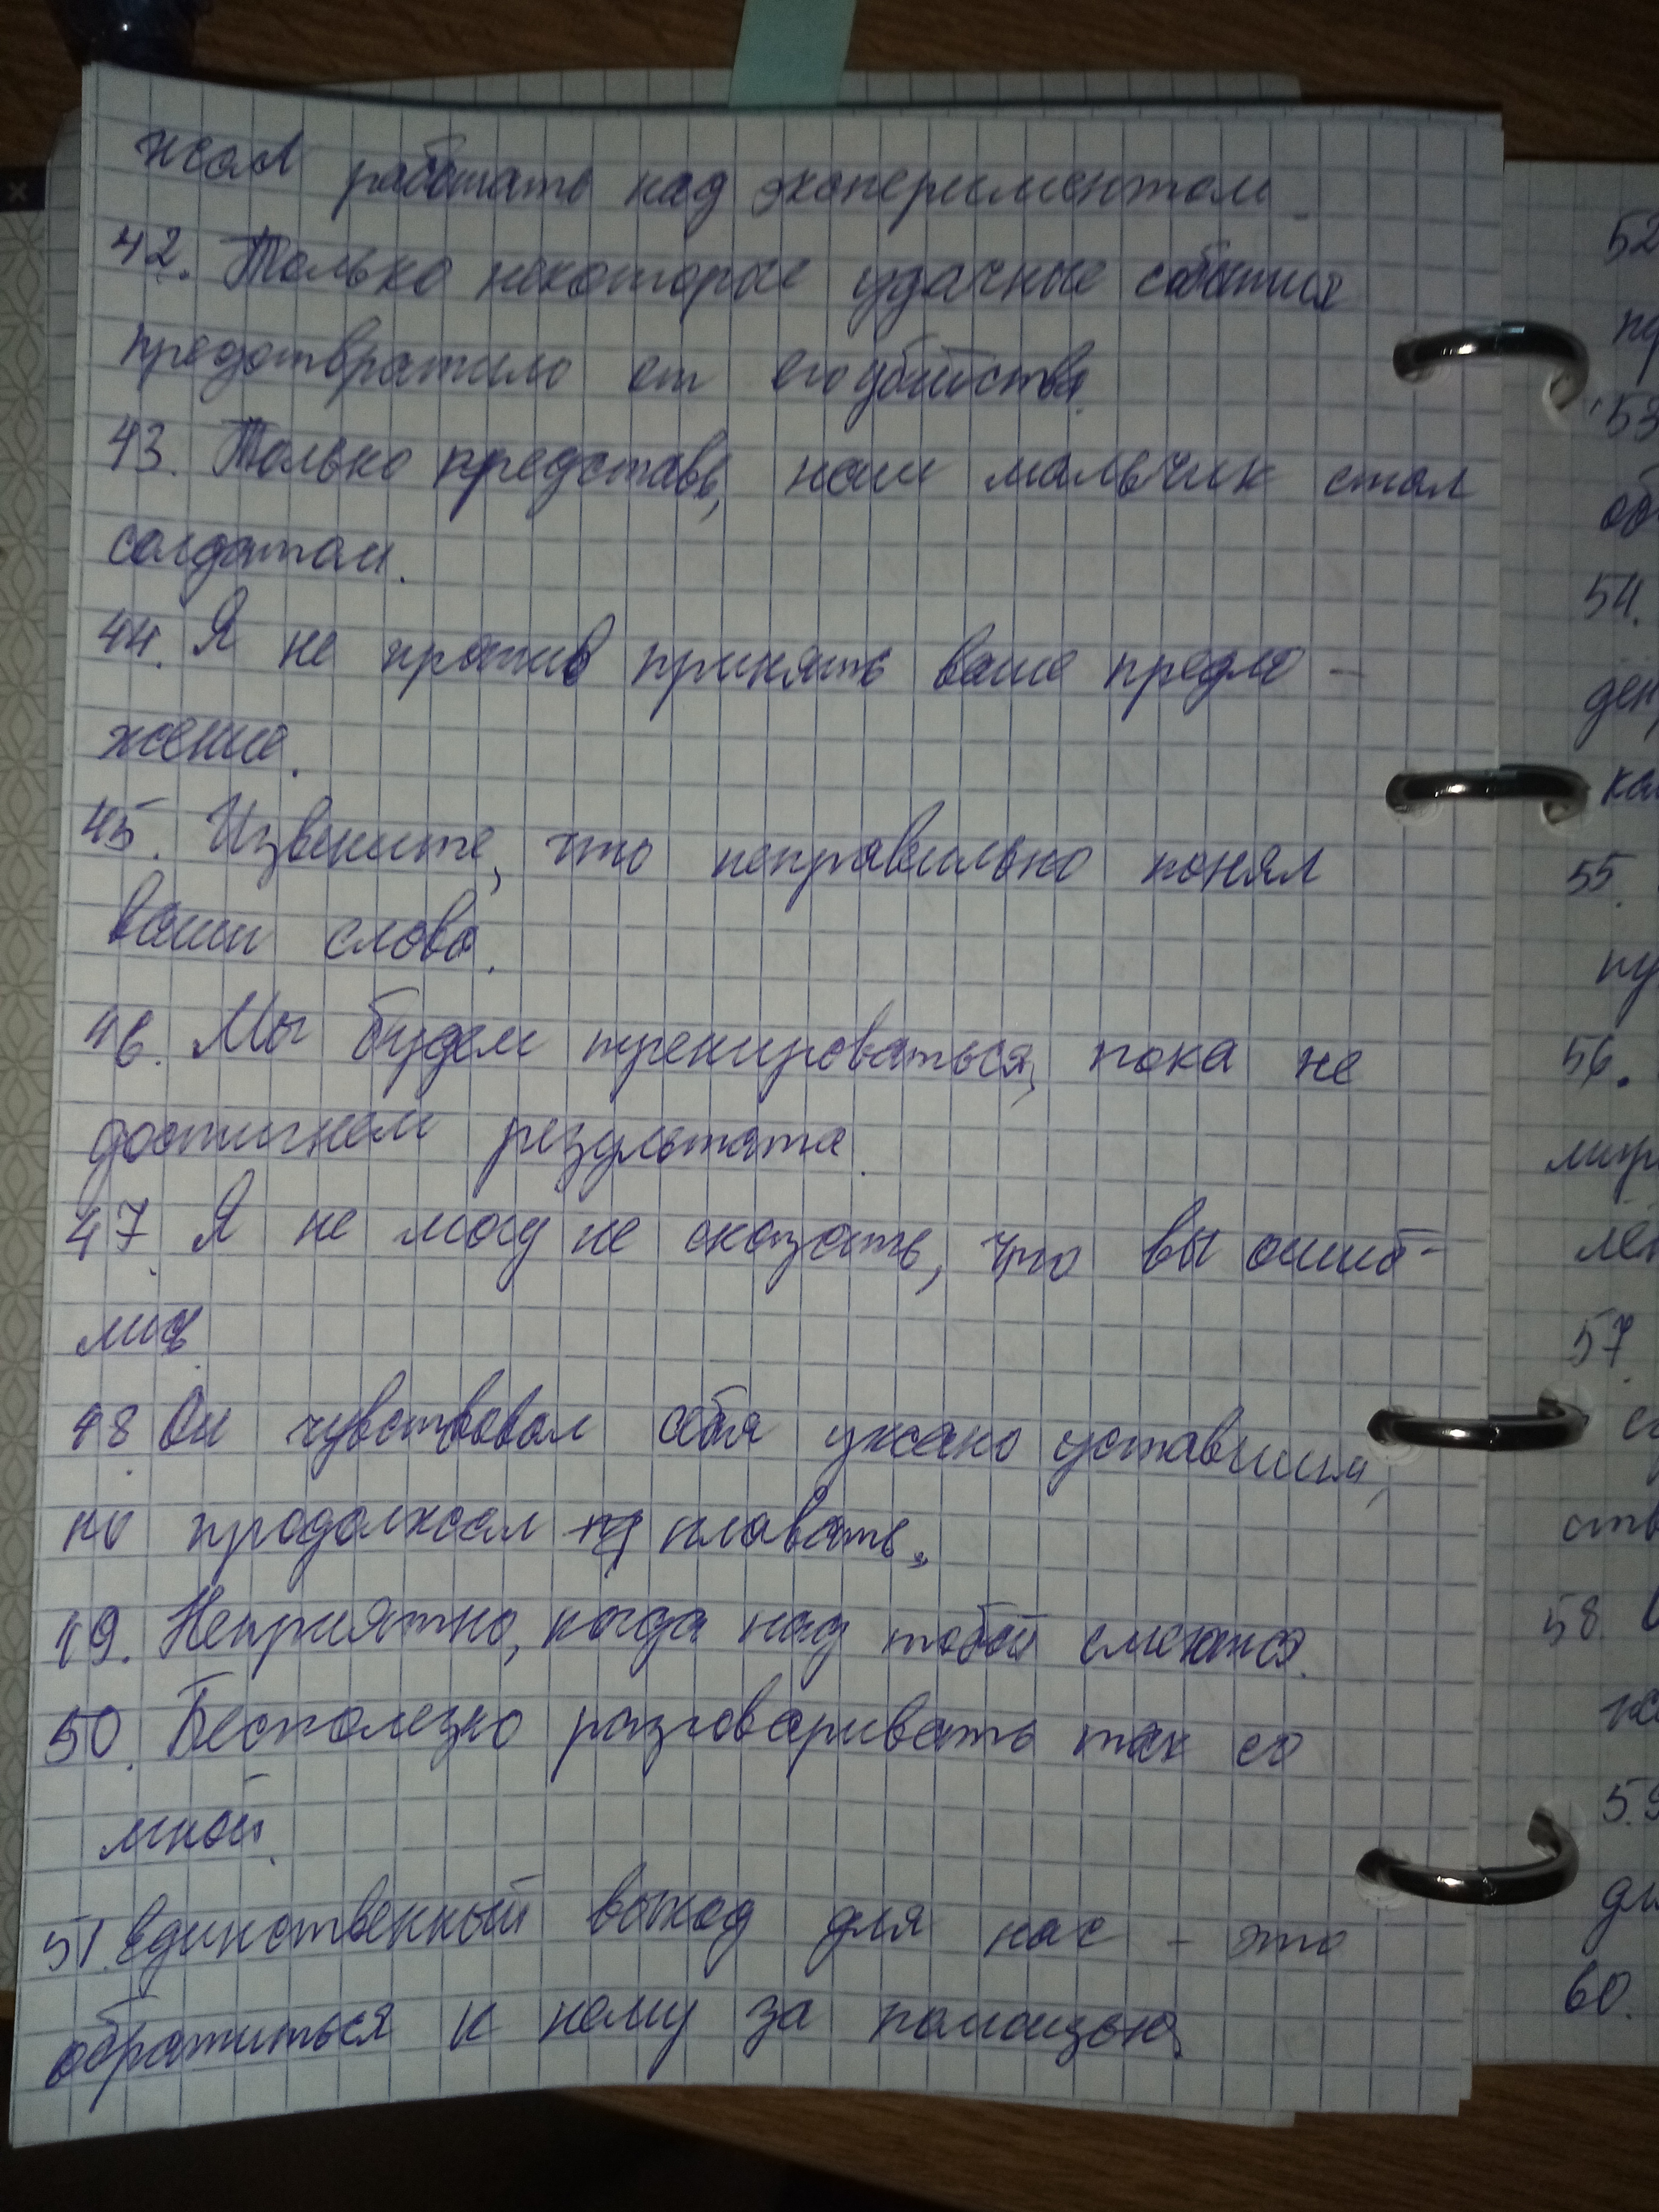 жал работать над экспериментом.
42. Только некоторые удачные события
предотвратило от его убийства.
43. Только представь, наш мальчик стал
солдатом.
44. Я не против принять ваше предло-
жение.
45. Извените, что неправильно понял
ваши слова.
46. Мы будем тренироваться, пока не
достигнем результата.
47. Я не могу не сказать, что вы ошиб-
лись.
48. Он чувствовал себя ужасно уставшим,
но продолжал плавать.
49. Неприятно, когда над тобой смеются.
50. Бесполезно разговаривать так со
мной.
51. Единственный выход для нас - это
обратиться к нему за помощью.
52
53
об
54.
ден
ка
55.
пу
56.
мир
лет
57.
ств
58.
59
ди
60.